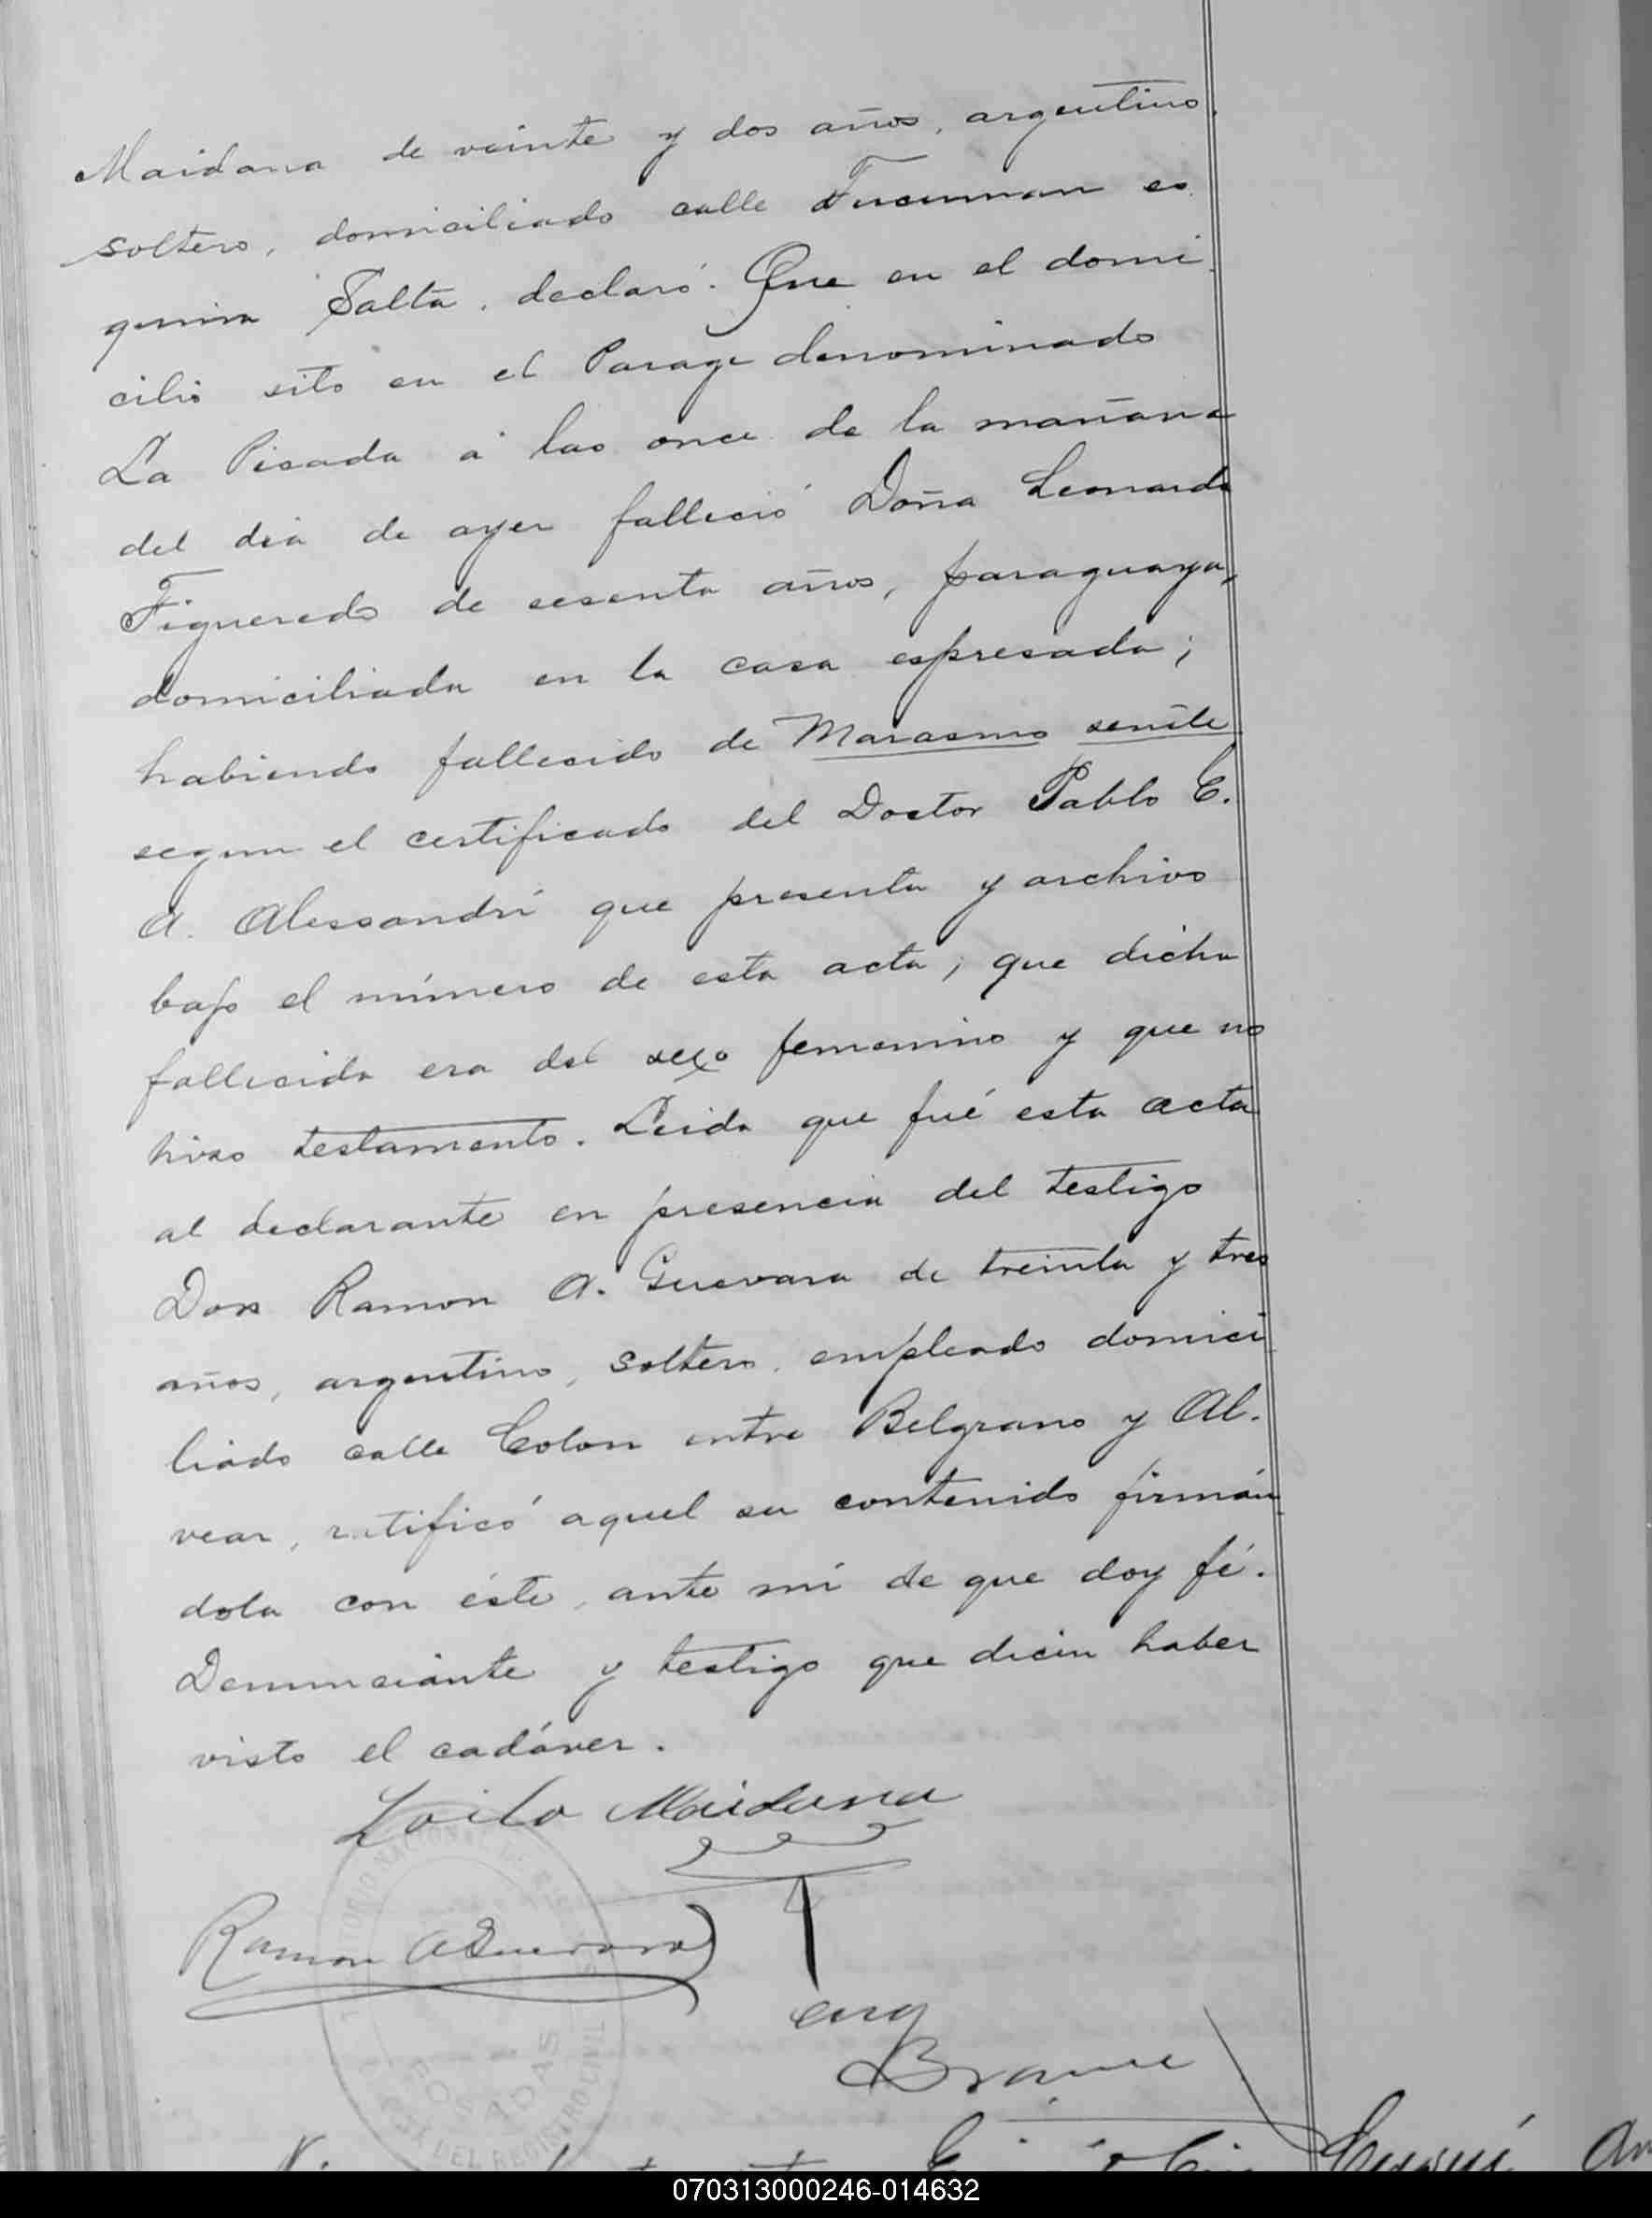 Maidana de veinte y dos años, argentino,
soltero, domiciliado calle Tucuman es
quina Salta, declaró: Que en el domi
cilio sito en el Parage denominado
La Picada á las once de la mañana
del dia de ayer falleció Doña Leonarda
Figueredo de sesenta años, paraguaya,
domiciliada en la casa espresada;
habiendo fallecido de Marasmo senile
segun el certificado del Doctor Pablo E.
A. Alessandri que presenta y archivo
bajo el número de esta acta; que dicha
fallecida era del sexo femenino y que no
hizo testamento. Leida que fué esta acta
al declarante en presencia del testigo
Don Ramon A. Guevara de treinta y tres
años, argentino, soltero, empleado domici
liado calle Colon entre Belgrano y Al-
vear, ratificó aquel su contenido firmán
dola con éste, ante mi de que doy fé.
Denunciante y testigo que dicen haber
visto el cadáver.
Zoilo Maidana
Ramon A Guevara
POSADAS
DEL REGISTRO CIVIL
070313000246-014632